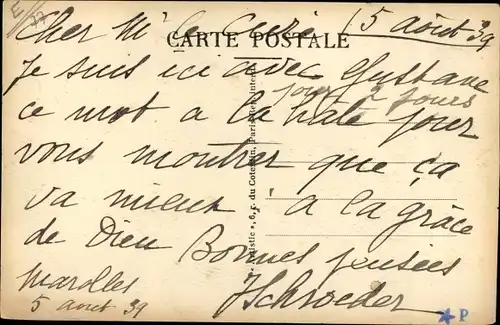 Cher Mr le Curé 5 août 39
CARTE POSTALE
Je suis ici avec Gustave
pour 2 jours
ce mot a la hâte pour
vous montrer que ça
va mieux à la grâce
de Dieu Bonnes pensées
Marolles JSchroeder
5 aout 39
6, r. du Cotentin, Paris
P